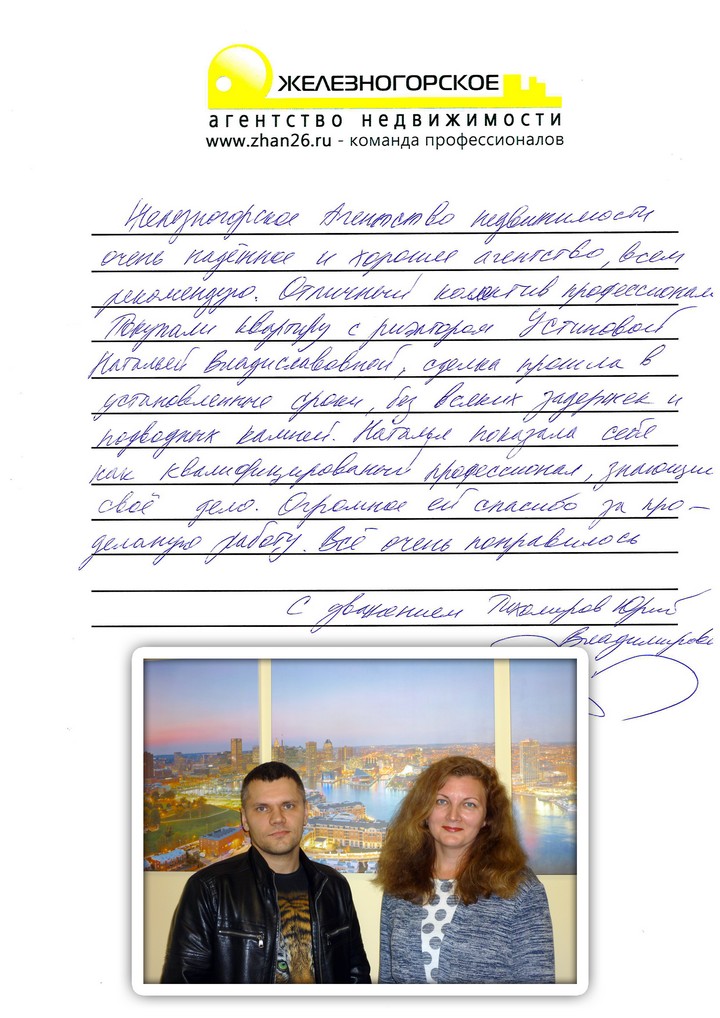 ЖЕЛЕЗНОГОРСКОЕ
агентство недвижимости
www.zhan26.ru - команда профессионалов
Железногорское Агентство недвижимости
очень надёжное и хорошее агентство, всем
рекомендую. Отличный коллектив профессионалов
Покупали квартиру с риэлтором Устиновой
Натальей Владиславовной, сделка прошла в
установленные сроки, без всяких задержек и
подводных камней. Наталья показала себя
как квалифицированый профессионал, знающий
своё дело. Огромное ей спасибо за про-
деланую работу. Всё очень понравилось
С уважением Тихомиров Юрий
Владимирович